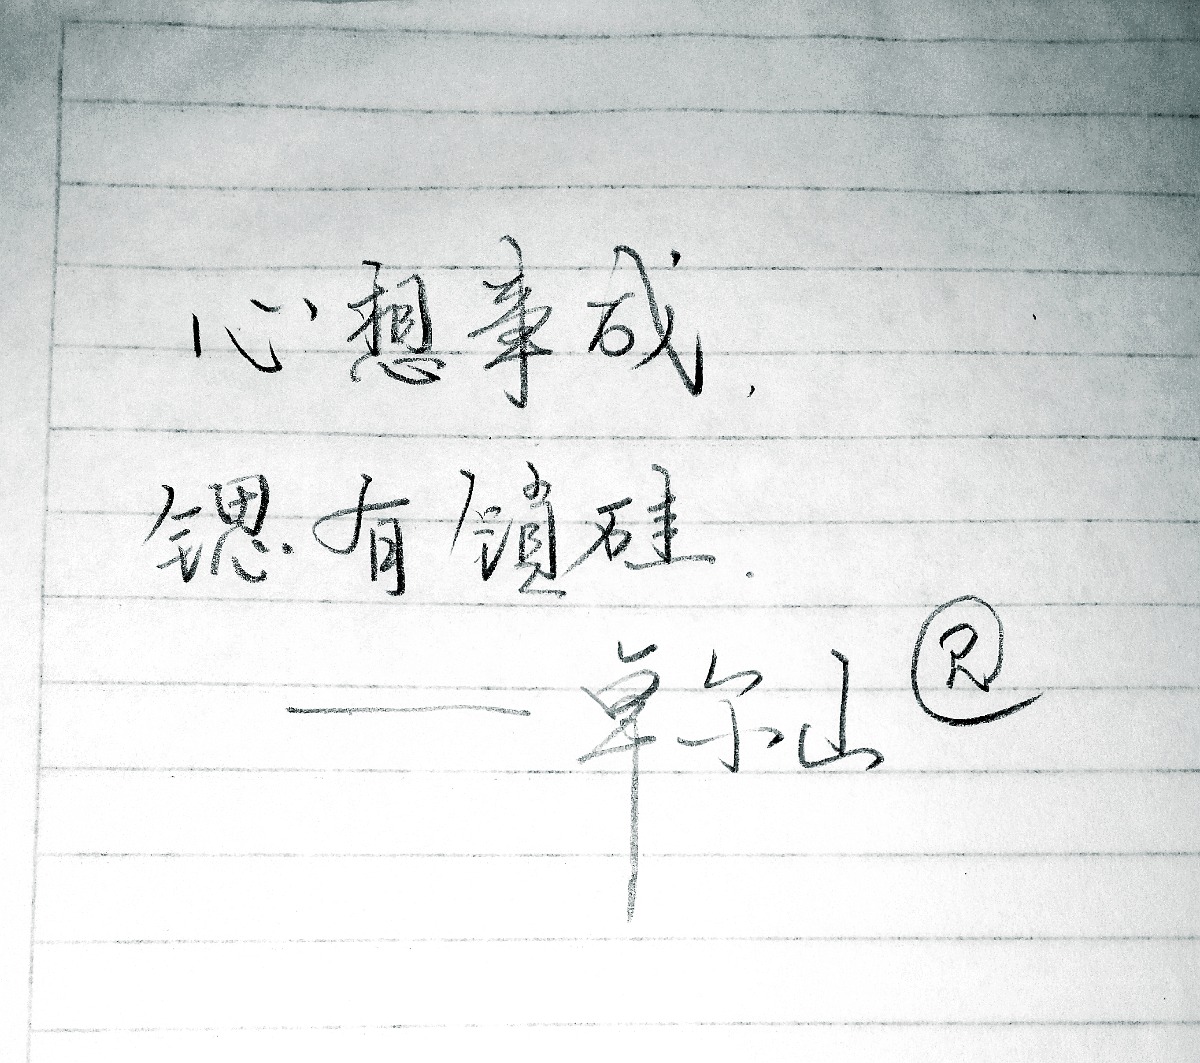 心想事成,
锶有鎖硅.
——卓尔山 ®